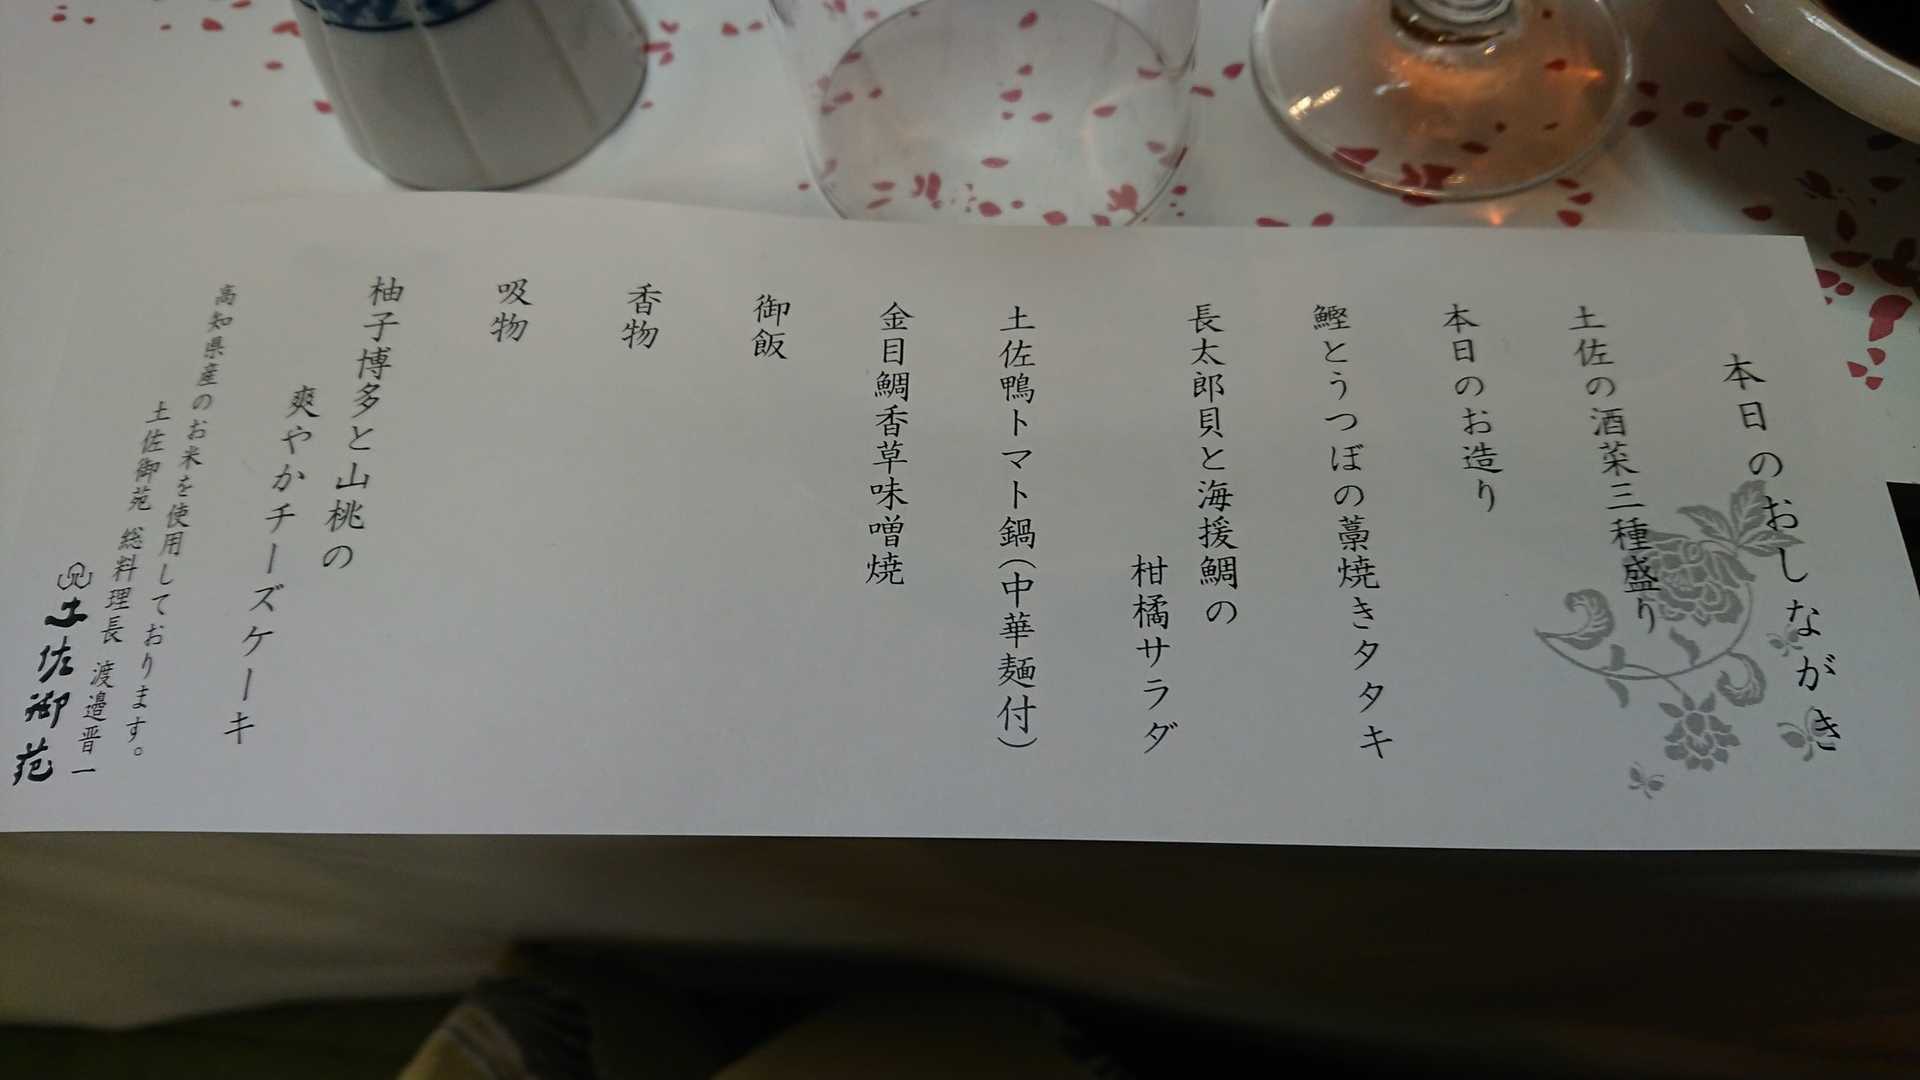 本日のおしながき
土佐の酒菜三種盛り
本日のお造り
鰹とうつぼの藁焼きタタキ
長太郎貝と海援鯛の
柑橘サラダ
土佐鴨トマト鍋(中華麺付)
金目鯛香草味噌焼
御飯
香物
吸物
柚子博多と山桃の
爽やかチーズケーキ
高知県産のお米を使用しております。
土佐御苑 総料理長 渡邉晋一
土佐御苑